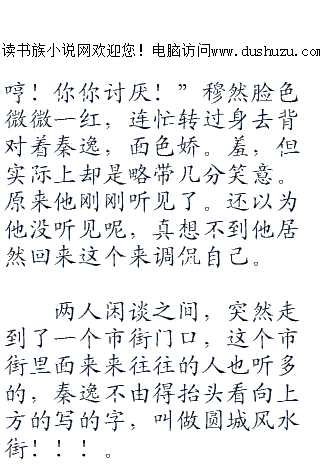 读书族小说网欢迎您！电脑访问www.dushuzu.com
哼！你你讨厌！”穆然脸色
微微一红，连忙转过身去背
对着秦逸，面色娇。羞，但
实际上却是略带几分笑意。
原来他刚刚听见了。还以为
他没听见呢，真想不到他居
然回来这个来调侃自己。
两人闲谈之间，突然走
到了一个市街门口，这个市
街里面来来往往的人也听多
的，秦逸不由得抬头看向上
方的写的字，叫做圆城风水
街！！！。